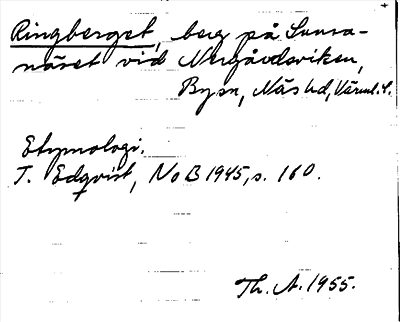 Ringberget, berg på Sunna-
näset vid Nergårdsviken,
Byn, Näs hd, Värml. l.
Etymologi.
T. Edqvist, NoB 1945, s. 160.
Th. A. 1955.